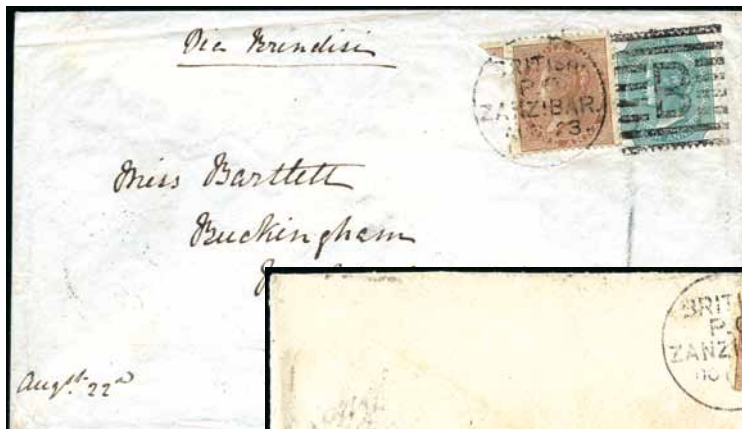 Via Brindisi
BRITISH
P.O.
ZANZIBAR
73
Miss Bartlett
Buckingham
Augst. 22nd
BRIT
P.
ZANZ